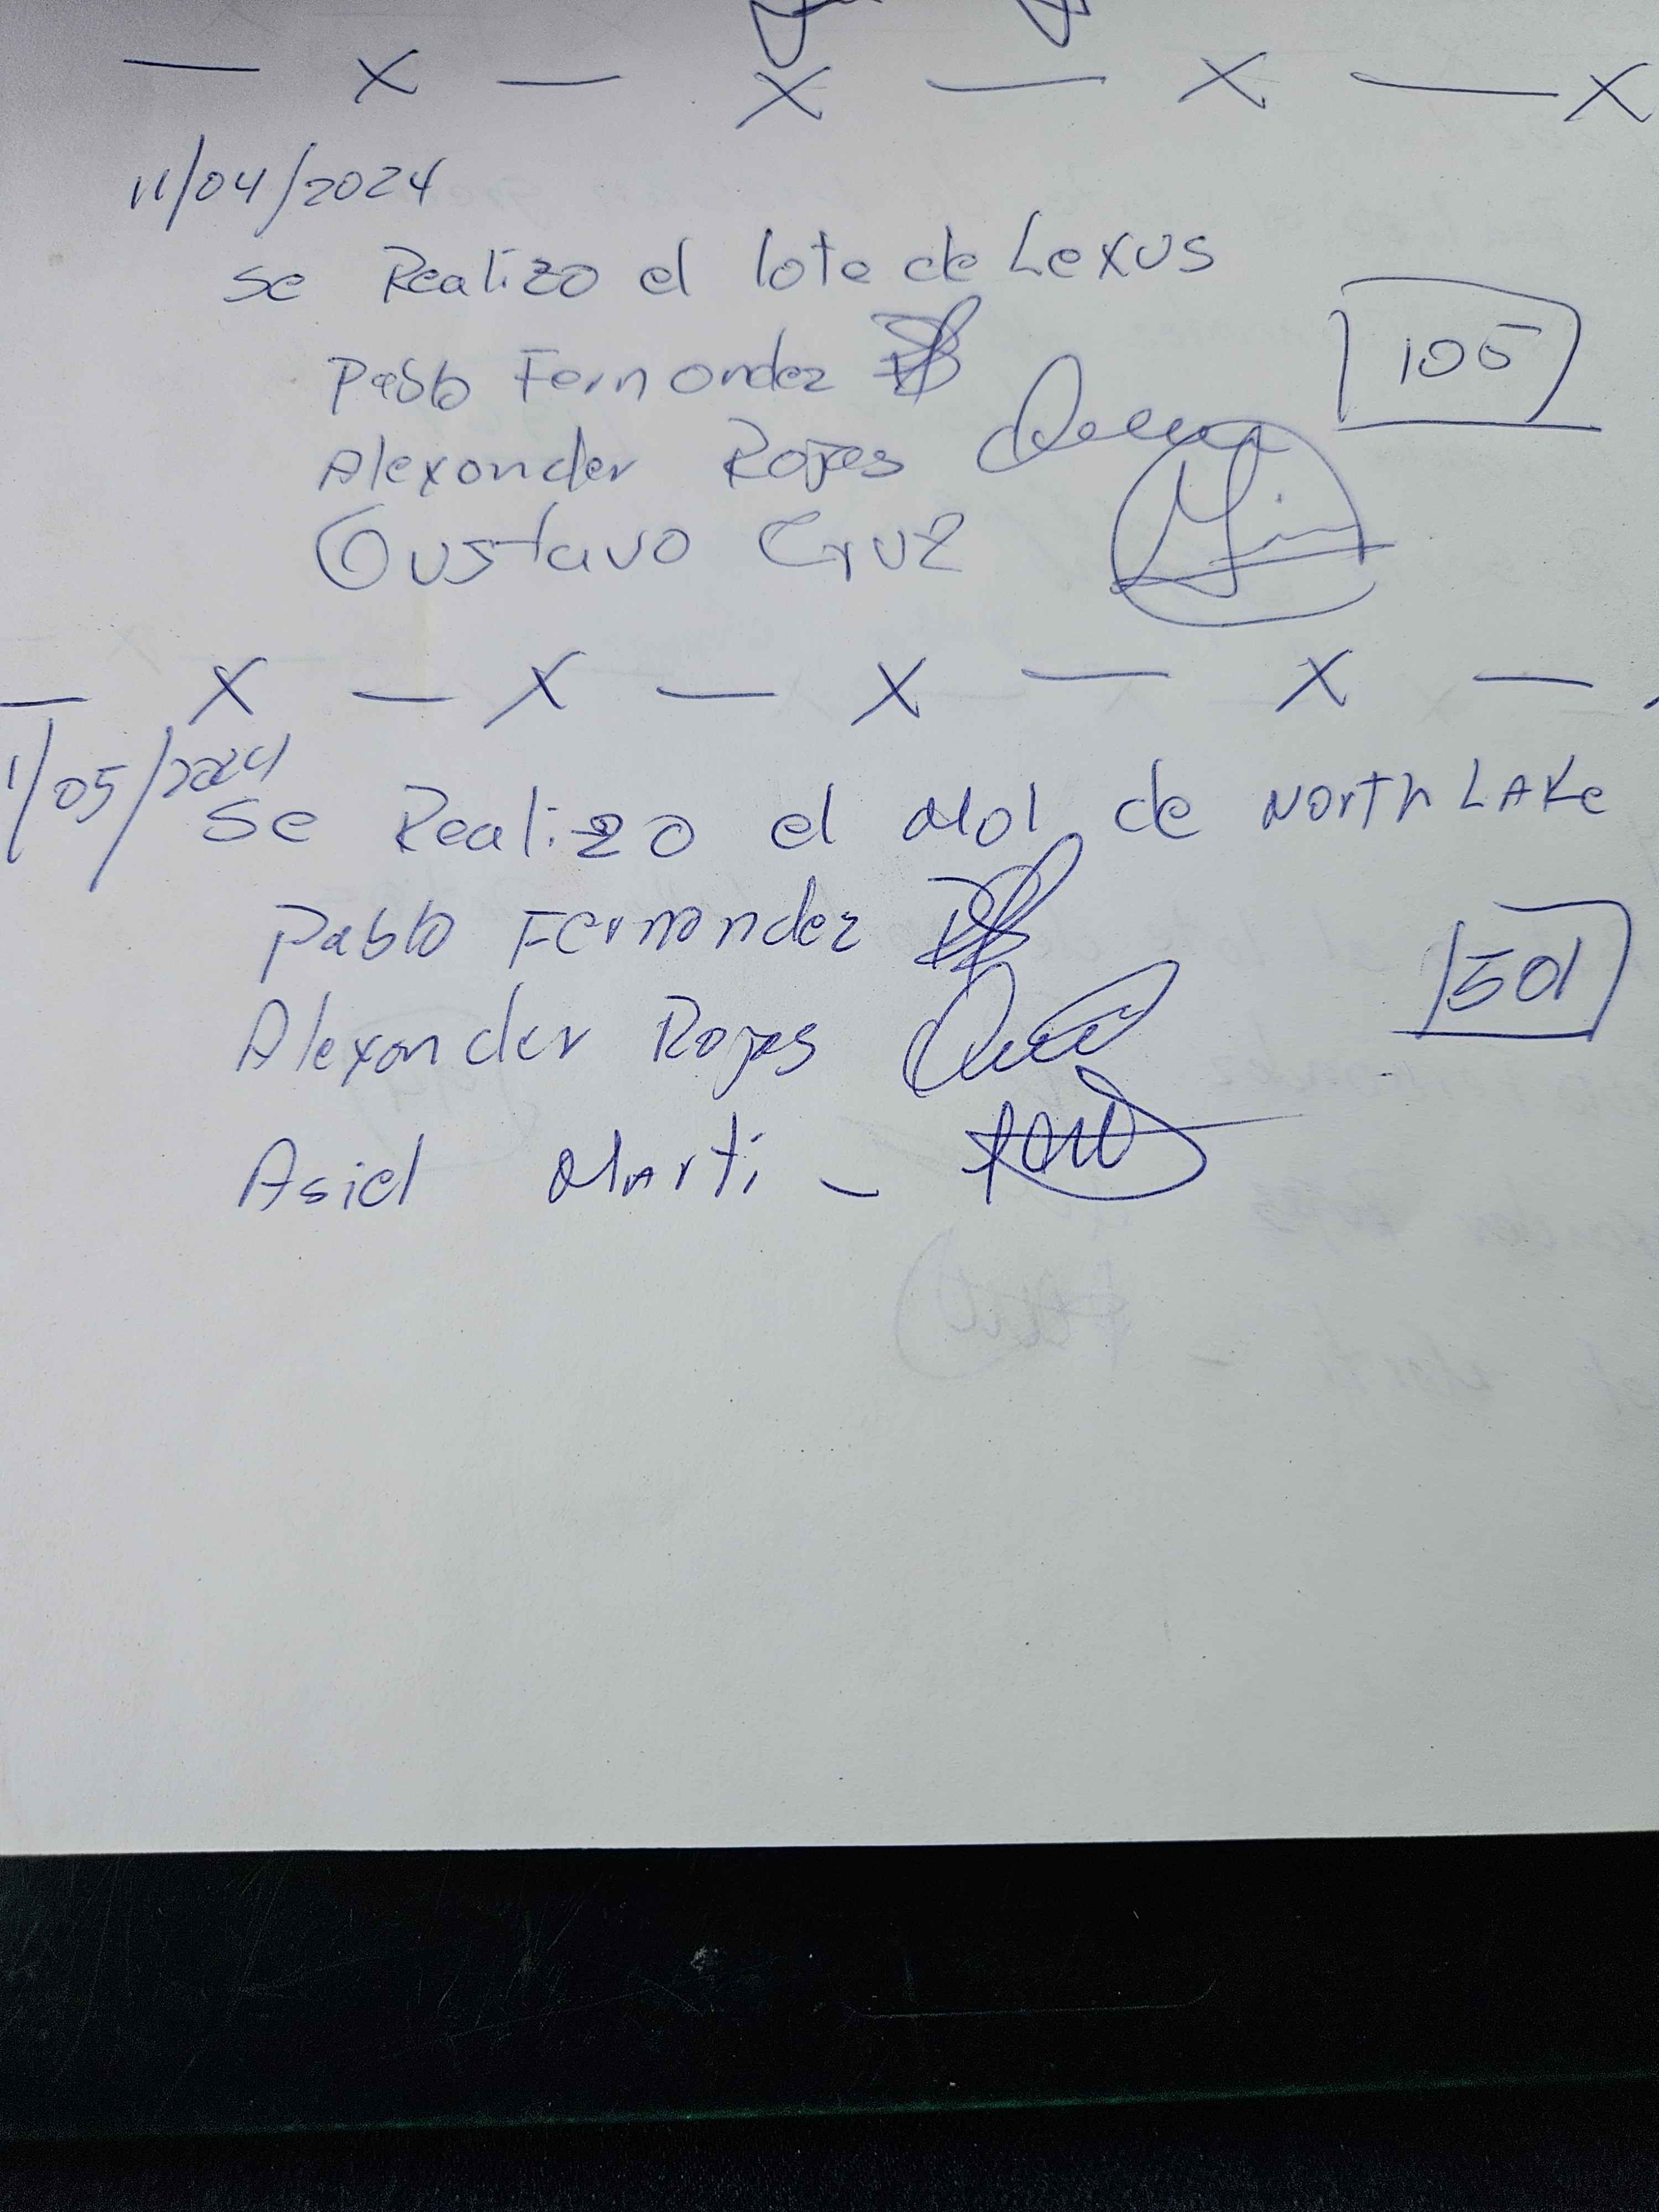 — X — X — X — X
11/04/2024
Se Realizo el lote de Lexus
Pablo Fernandez
105
Alexander Rojas
Gustavo Cruz
— X — X — X — X —
1/05/2024
Se Realizo el Mol de North LAKe
Pablo Fernandez
501
Alexander Rojas
Asiel MArti –